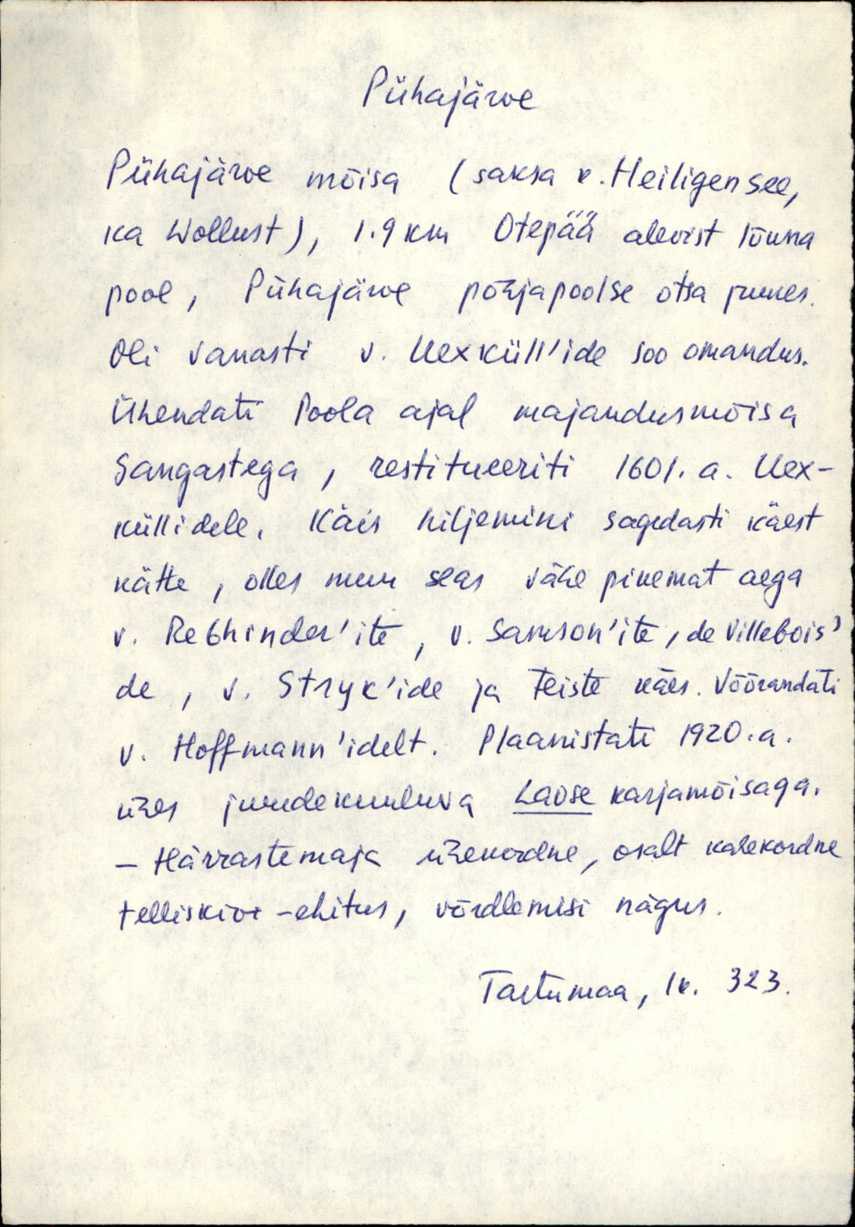 Pühajärve
Pühajärve mõisa (saksa k. Heiligensee,
ka Wollust), 1.9 km Otepää alevist lõuna
pool, Pühajärve põhjapoolse otsa juures.
Oli vanasti v. Uexküll'ide soo omandus.
Ühendati Poola ajal majandusmõisa
Sangastega, restitueeriti 1601. a. Uex-
küllidele. Käis hiljemini sagedasti käest
kätte, olles muu seas vähe pikemat aega
v. Rebhinder'ite, v. Samson'ite, de Villebois'
de, v. Stryk'ide ja teiste käes. Võõrandati
v. Hoffmann'idelt. Plaanistati 1920.a.
ühes juurdekuuluva Laose karjamõisaga.
– Härrastemaja ühekordne, osalt kahekordne
telliskivi-ehitus, võrdlemisi nägus.
Tartumaa, lk. 323.